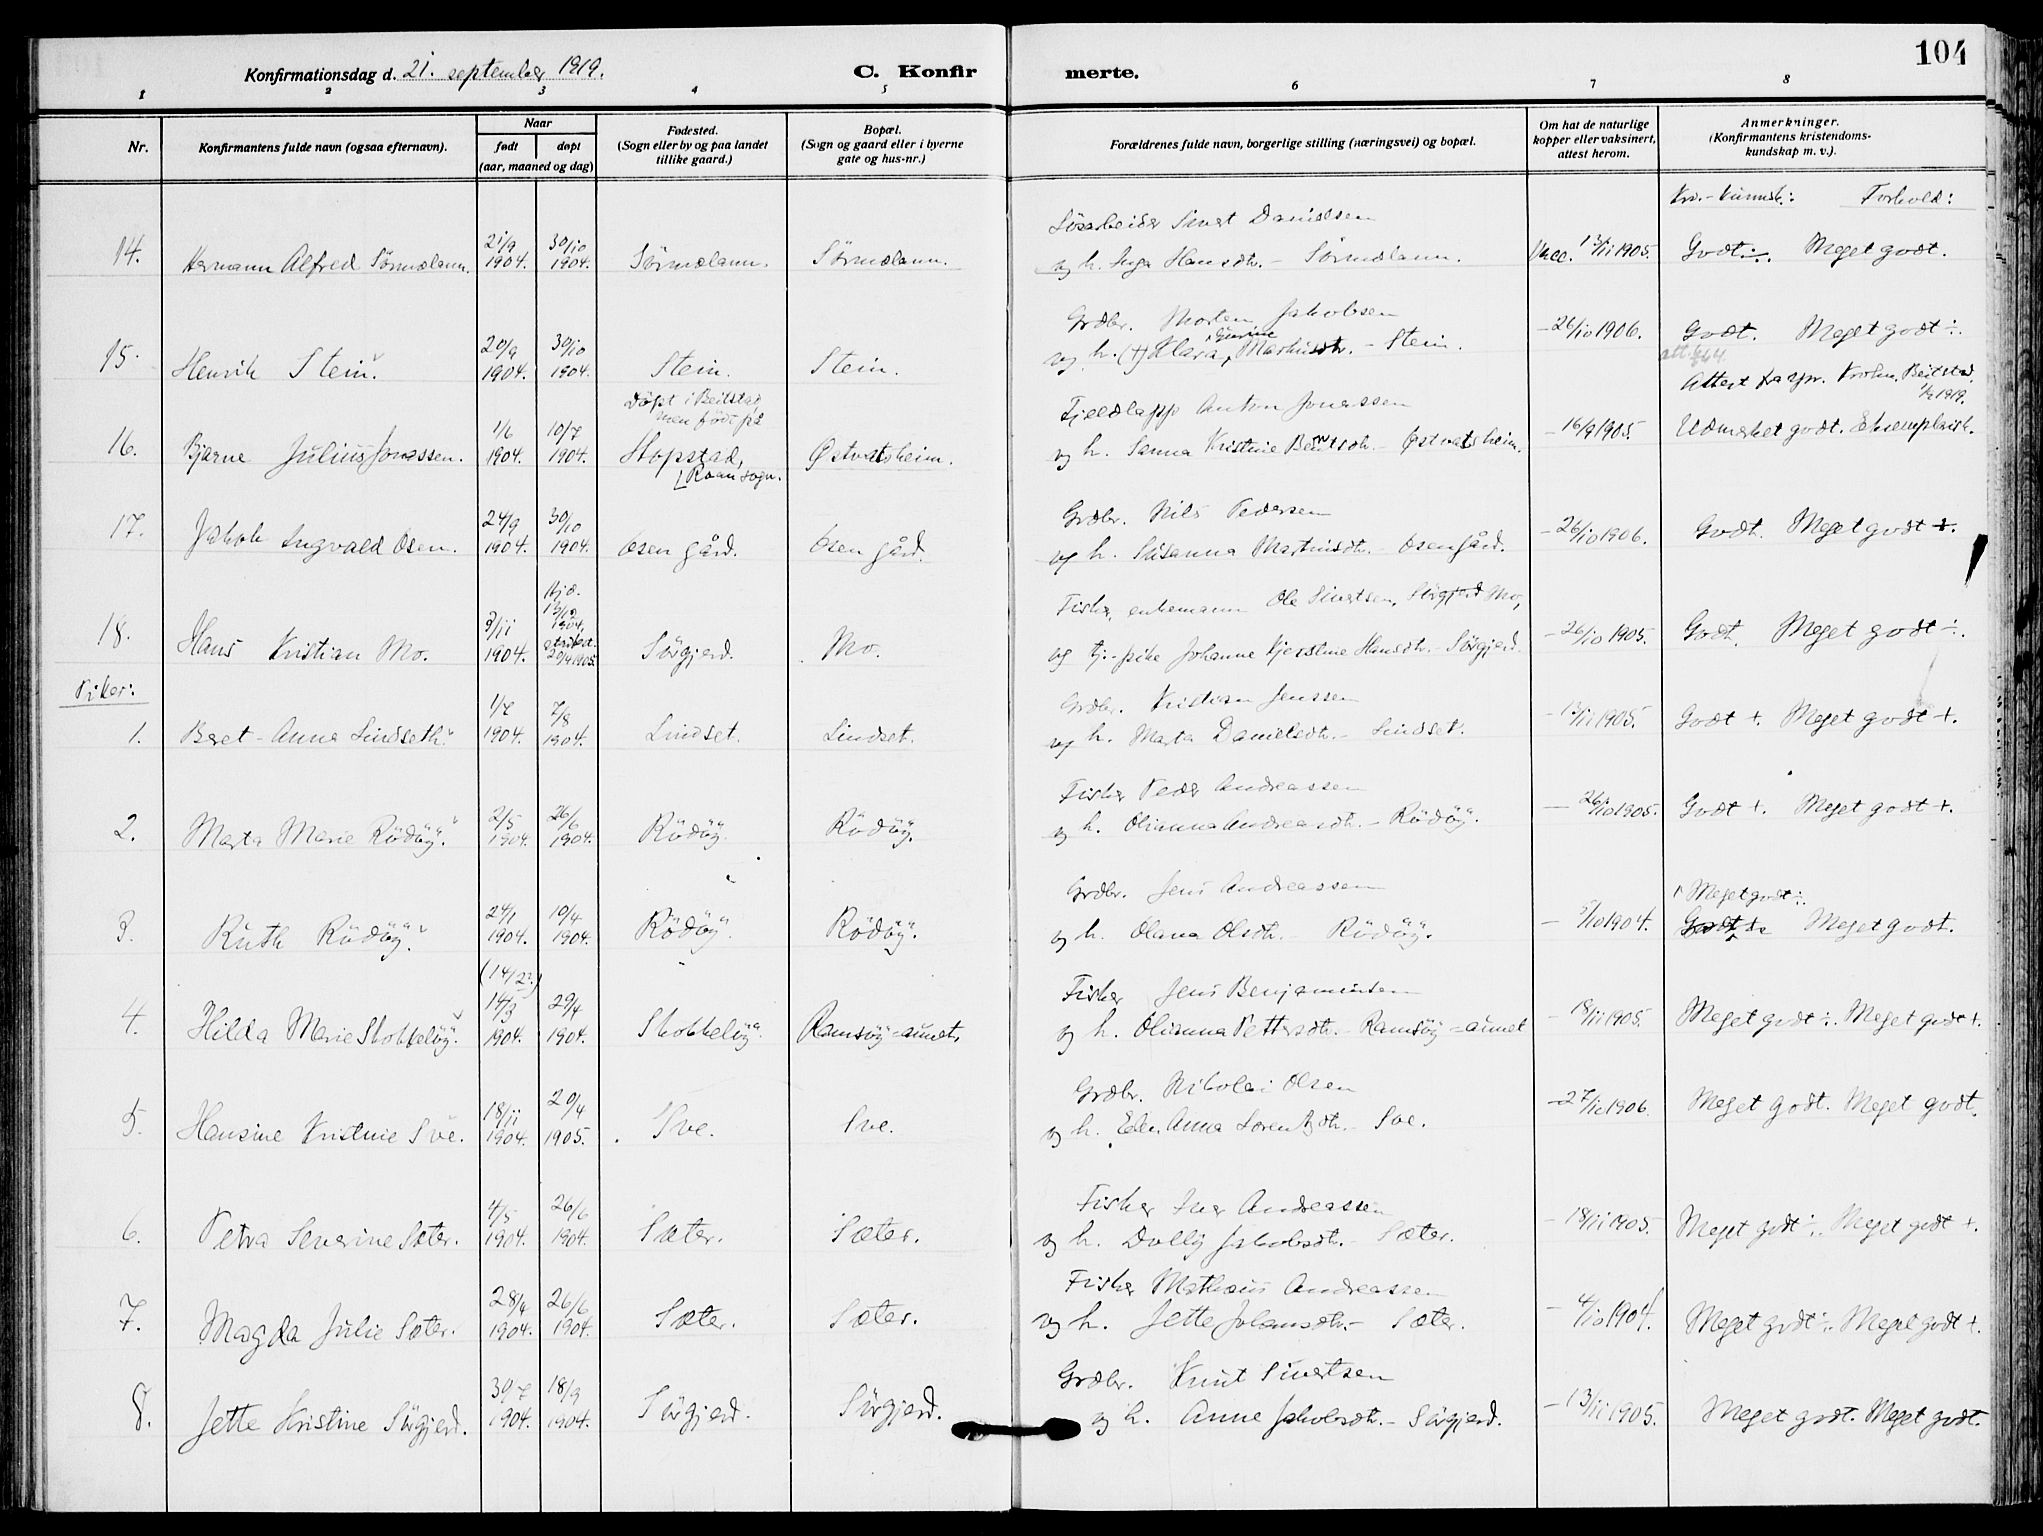 104
Konfirmationsdag d. 21. september 1919.
C. Konfir
merte.
1 2 3 4 5 6 7 8
Nr.
Konfirmantens fulde navn (ogsaa efternavn).
Naar
født
døpt
(aar, maaned og dag)
Fødested.
(Sogn eller by og paa landet
tillike gaard.)
Bopæl.
(Sogn og gaard eller i byerne
gate og hus-nr.)
Forældrenes fulde navn, borgerlige stilling (næringsvei) og bopæl.
Om hat de naturlige
kopper eller vaksinert,
attest herom.
Anmerkninger.
(Konfirmantens kristendoms-
kundskap m. v.).
Forhold:
14. Hermann Alfred Sörmælann. 21/9 1904. 30/10 1904. Sörmælann. Sörmælann.
Løsarbeider Sivert Danielsen
og h. Inga Hansdtr. – Sörmælann. Vacc. 13/11 1905. Godt ÷. Meget godt.
15. Henrik Stein. 20/9 1904. 30/10 1904. Stein. Stein.
Grdbr. Morten Jakobsen
og h. (†) Klara Martinsdtr. – Stein. – 26/10 1906. Godt. Meget godt ÷.
16. Bjarne Julius Jonassen. 1/6 1904. 10/7 1904.
Döpt i Beitstad
men född på
Hopstad,
Roan sogn.
Østvatsheim.
Fjeldlapp Anton Jonassen
og h. Sanna Kristine Bentsdtr. – Østvatsheim. – 16/9 1905.
Attest fra spr. Krohn, Beitstad,
1919.
Udmerket godt. Eksemplarisk.
17. Jakob Ingvald Osen. 24/9 1904. 30/10 1904. Osen gård. Osen gård.
Grdbr. Nils Pedersen
og h. Susanna Martinsdtr. – Osen gård. – 26/10 1906. Godt. Meget godt +.
18. Hans Kristian Mo. 3/11 1904. Hjd. 13/12 1904, 20/4 1905. Sörgjerd. Mo.
Fisker, enkemann Ole Sivertsen, Sörgjerd Mo,
og tj.-pike Johanne Kjerstine Hansdtr. – Sörgjerd. – 26/10 1905. Godt. Meget godt ÷.
Piker:
1. Beret-Anna Lindseth. 1/7 1904. 7/8 1904. Lindset. Lindset.
Grdbr. Kristian Jenssen
og h. Marta Danielsdtr. – Lindset. – 13/11 1905. Godt +. Meget godt +.
2. Marta Marie Rödöy. 2/5 1904. 26/6 1904. Rödöy. Rödöy.
Fisker Peder Andreassen
og h. Olianna Andreasdtr. – Rödöy. – 26/10 1905. Godt +. Meget godt +.
3. Ruth Rödöy. 24/1 1904. 10/4 1904. Rödöy. Rödöy.
Grdbr. Jens Andreassen
og h. Olana Olsdtr. – Rödöy. – 5/10 1904.
Meget godt ÷.
Godt + Meget godt.
4. Hilda Marie Stokkeløy. (14/2?) 14/3 1904. 29/4 1904. Stokkelöy. Ramsöy-aunet.
Fisker Jens Benjaminsen
og h. Olianna Pettersdtr. – Ramsöy-aunet – 18/11 1905. Meget godt ÷. Meget godt +.
5. Hansine Kristine Sve. 18/11 1904. 20/4 1905. Sve. Sve.
Grdbr. Nikolai Olsen
og h. Elen Anna Lorentsdtr. – Sve. – 27/10 1906. Meget godt. Meget godt.
6. Petra Severine Sæter. 4/5 1904. 26/6 1904. Sæter. Sæter.
Fisker Iver Andreassen
og h. Dolly Jakobsdtr. – Sæter. – 18/11 1905. Meget godt ÷. Meget godt +.
7. Magda Julie Sæter. 28/4 1904. 26/6 1904. Sæter. Sæter.
Fisker Mathæus Andreassen
og h. Jette Johansdtr. – Sæter. – 4/10 1904. Meget godt ÷. Meget godt +.
8. Jette Kristine Sörgjerd. 30/7 1904. 18/9 1904. Sörgjerd. Sörgjerd.
Grdbr. Knut Sivertsen
og h. Anne Jakobsdtr. – Sörgjerd. – 13/11 1905. Meget godt. Meget godt.